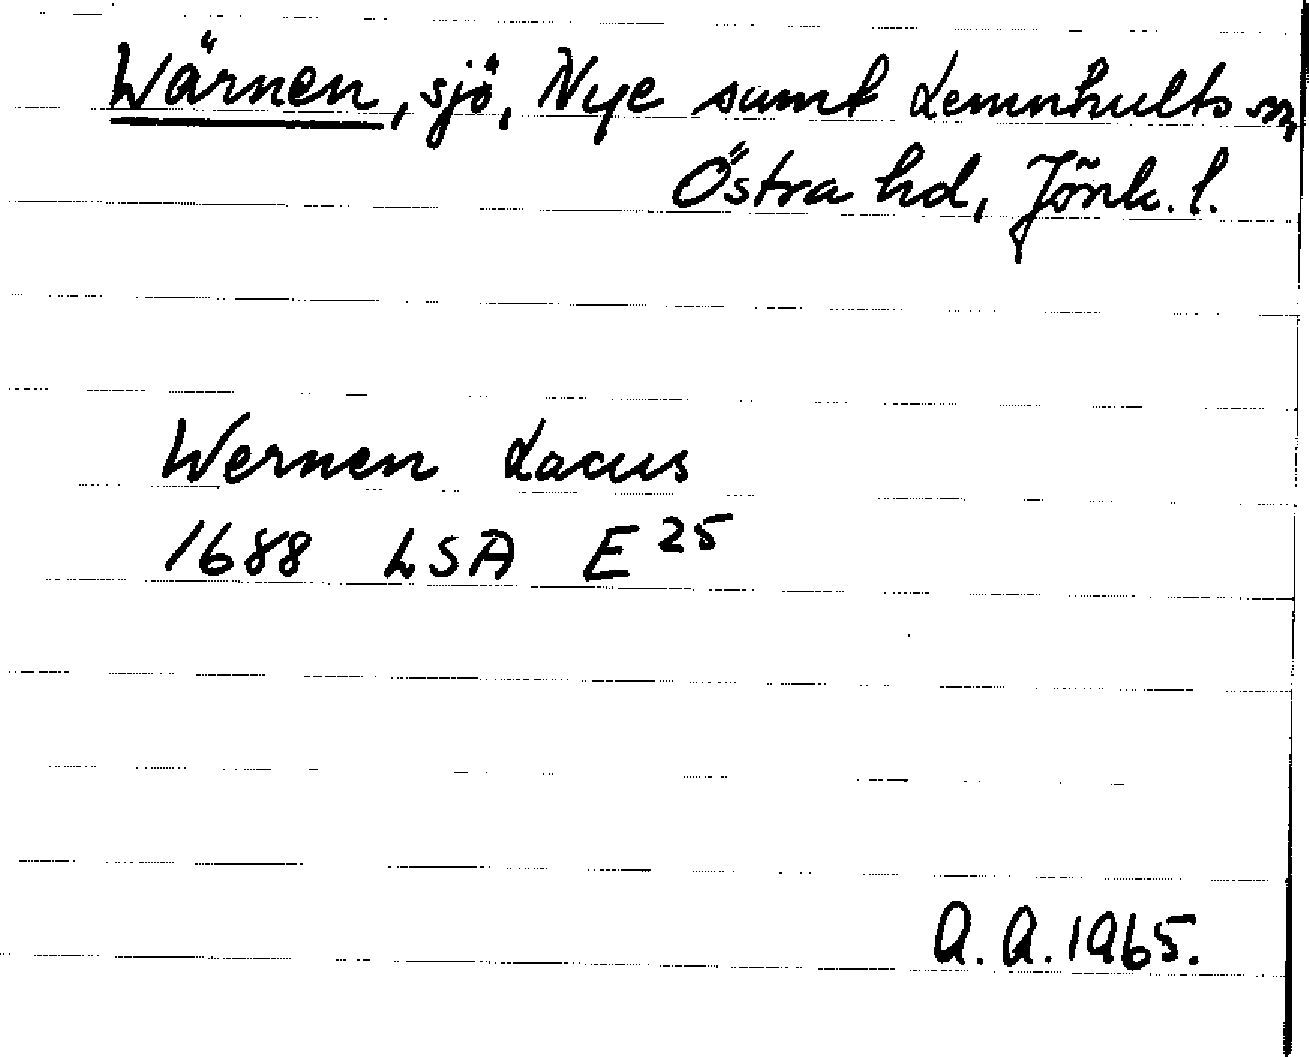 Wärnen, sjö, Nye samt Lemnhults sn,
Östra hd, Jönk. l.
Wernen Lacus
1688 LSA E 25
A. A. 1965.